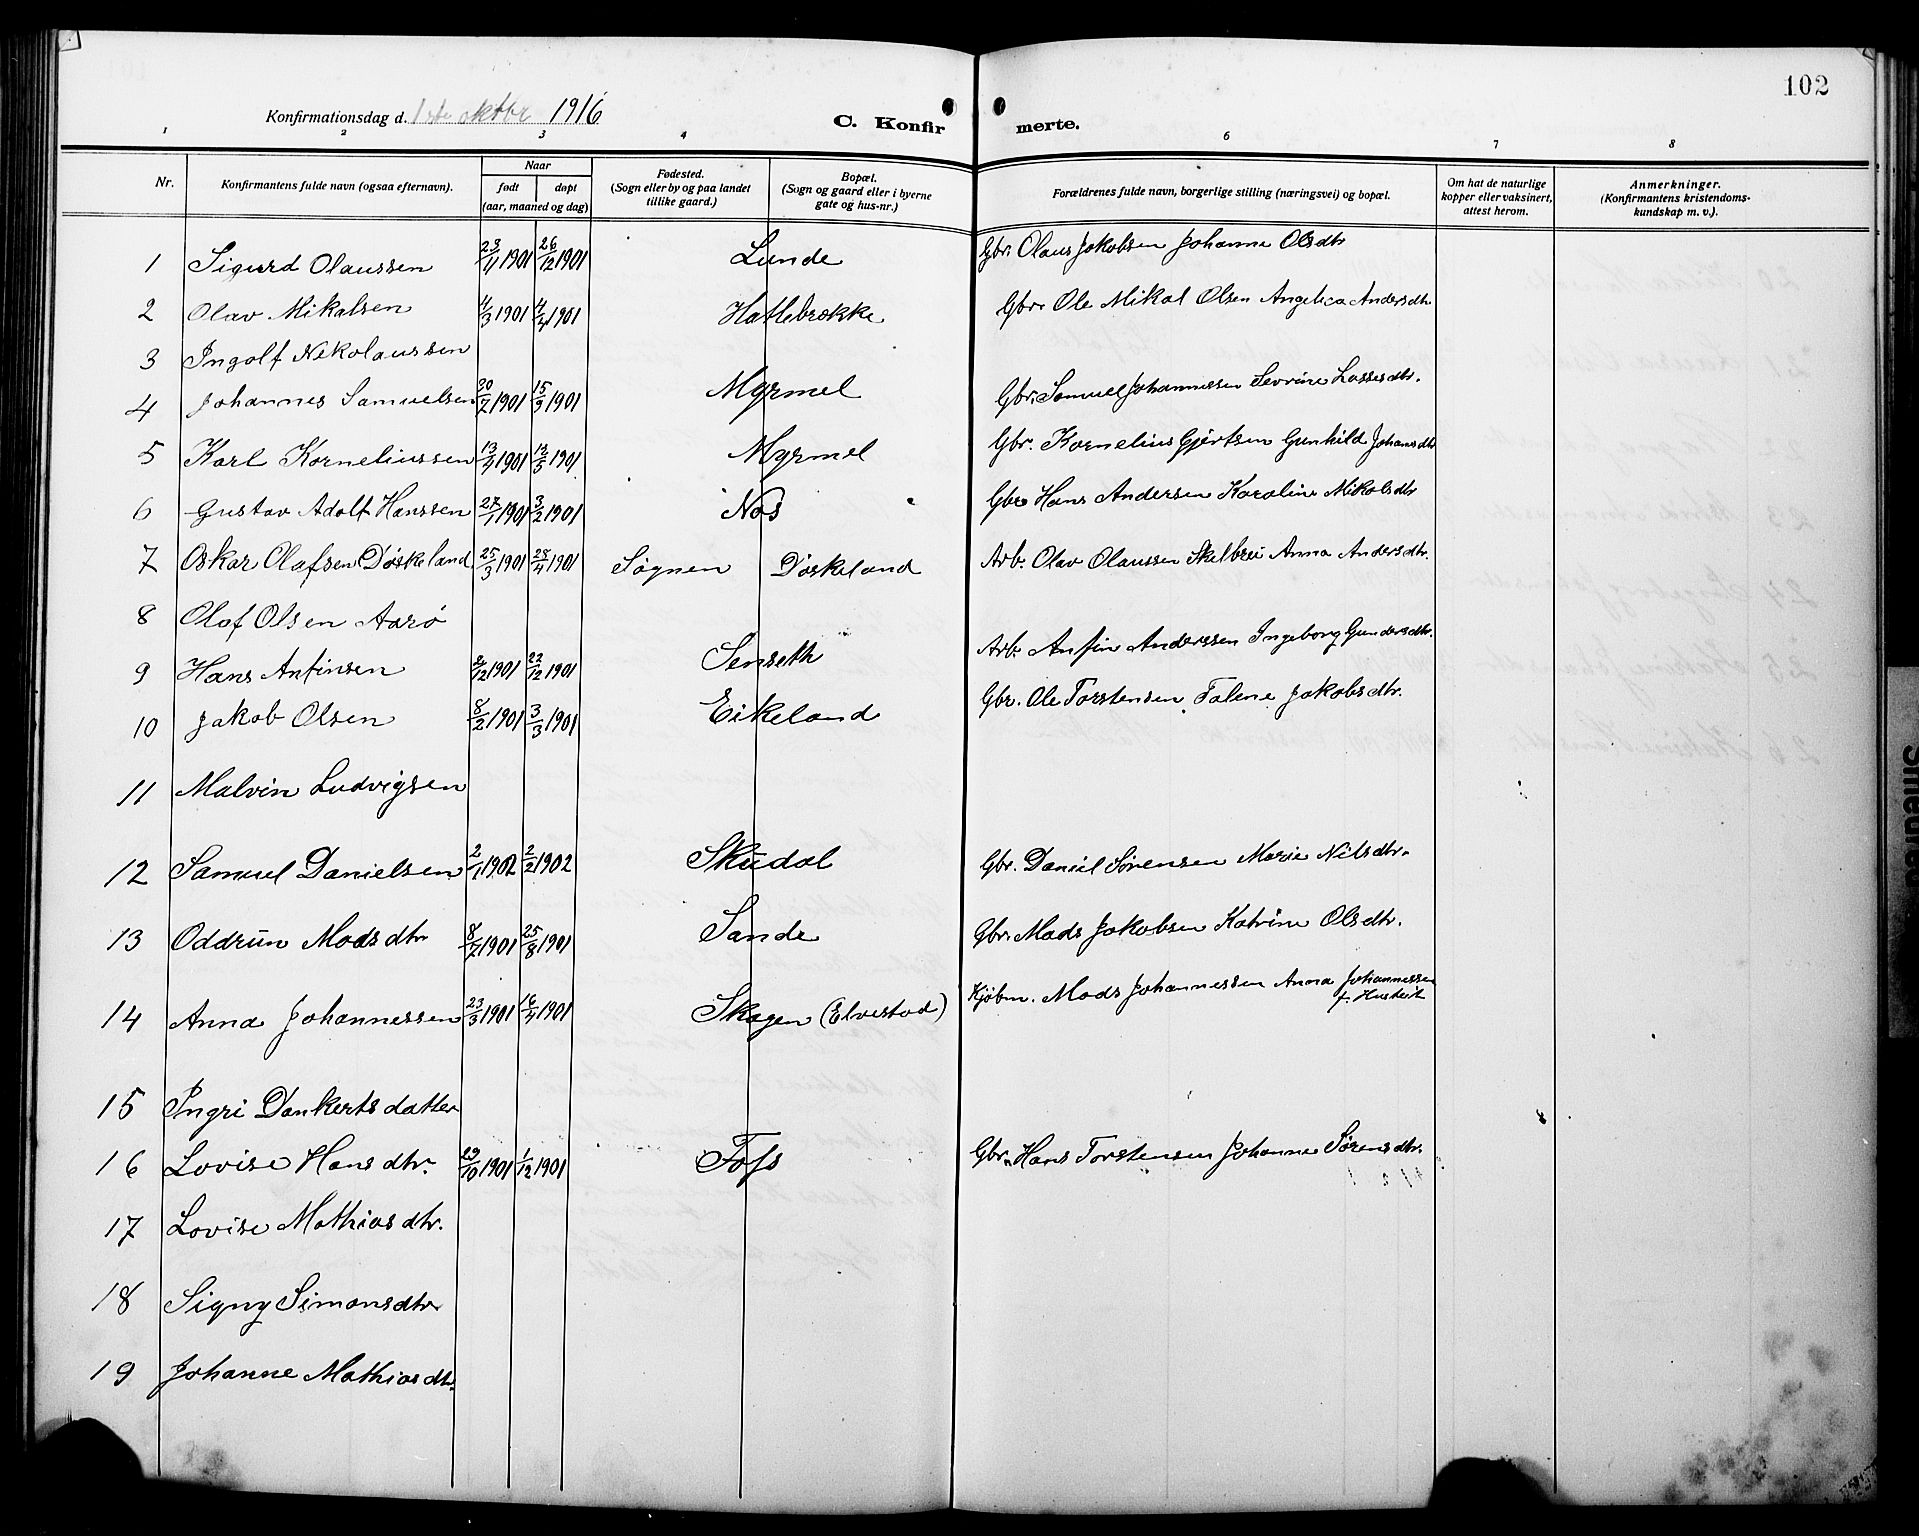 102
Konfirmationsdag d. 1ste oktbr 1916
C. Konfirmerte.
1 2 3 4 6 7 8
Nr. Konfirmantens fulde navn (ogsaa efternavn). Naar født døpt (aar, maaned og dag) Fødested. (Sogn eller by og paa landet tillike gaard.) Bopæl. (Sogn og gaard eller i byerne gate og hus-nr.) Forældrenes fulde navn, borgerlige stilling (næringsvei) og bopæl. Om hat de naturlige kopper eller vaksinert, attest herom. Anmerkninger. (Konfirmantens kristendoms-kundskap m. v.).
1 Sigurd Olaussen 23/11 1901 26/12 1901 Lunde Gbr. Olaus Jakobsen Johanna Olsdtr
2 Olav Mikalsen 4/3 1901 4/4 1901 Hatlebrekke Gbr. Ole Mikal Olsen Angelica Andersdtr
3 Ingolf Nikolaussen
4 Johannes Samuelsen 20/7 1901 15/9 1901 Myrmel Gbr. Samuel Johannessen Sevrine Lassesdtr.
5 Karl Korneliussen 13/4 1901 12/5 1901 Myrmel Gbr. Kornelius Gjertsen Gunhild Johansdtr
6 Gustav Adolf Hanssen 27/1 1901 3/2 1901 Nos Gbr Hans Andersen Karoline Mikalsdtr
7 Oskar Olafsen Døskeland 25/3 1901 28/4 1901 Søgnen Døskeland Arb. Olav Olaussen Skelbrei Anna Andersdtr.
8 Olaf Olsen Aarø
9 Hans Anfinsen 2/12 1901 22/12 1901 Senseth Arb. Anfin Anderssen Ingeborg Gundersdtr.
10 Jakob Olsen 8/2 1901 3/3 1901 Eikeland Gbr. Ole Torstensen Talene Jakobsdtr.
11 Malvin Ludvigsen
12 Samuel Danielsen 2/1 1902 2/2 1902 Skudal Gbr. Daniel Sørensen Marie Nilsdtr.
13 Oddrun Madsdtr 8/7 1901 25/8 1901 Sande Gbr. Mads Jakobsen Katrine Olsdtr.
14 Anna Johannessen 23/3 1901 16/4 1901 Skagen (Elvestad) Kjøbm. Mads Johannessen Anna Johannessen
f.
15 Ingri Dankertsdatter
16 Lovise Hansdtr. 29/10 1901 1/12 1901 Foss Gbr. Hans Torstensen Johanne Sørensdtr.
17 Lovise Mathiasdtr.
18 Signy Simonsdtr
19 Johanne Mathiasdtr.